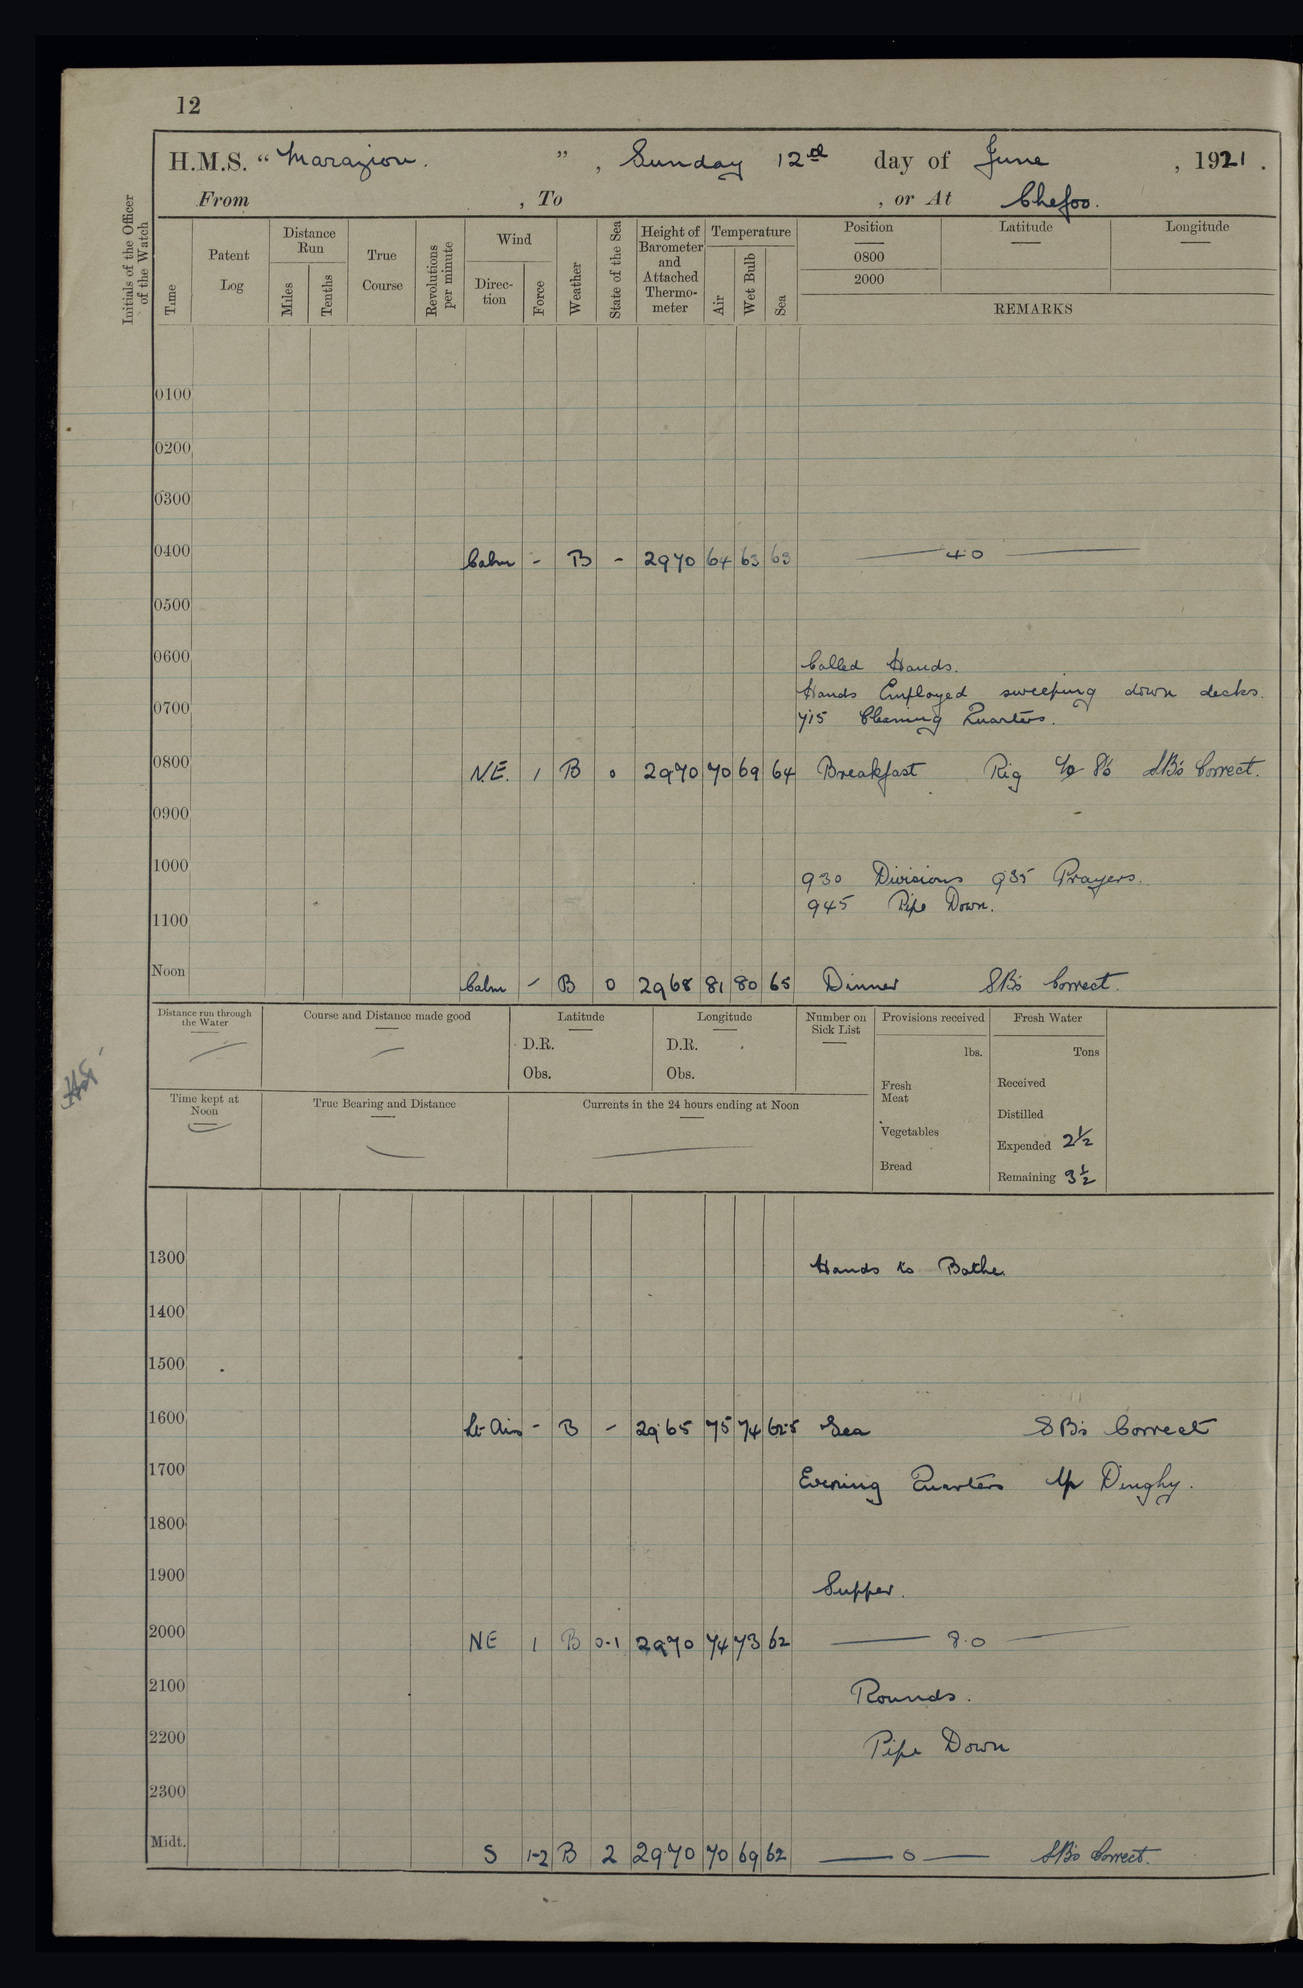 12
H.M.S. " Marazion. ", Sunday 12rd day of June, 1921.
From , To , or At Chefoo.
Initials of the Officer of the Watch
Time
Patent Log
Distance Run
Miles
Tenths
True Course
Revolutions per minute
Wind
Direction
Force
Weather
State of the Sea
Height of Barometer and Attached Thermometer
Temperature
Air
Wet Bulb
Sea
Position
0800
2000
Latitude
Longitude
REMARKS
0100
0200
0300
0400 Calm - B - 2970 64 63 63 — 4.0 —
0500
0600 Called Hands.
Hands Employed sweeping down decks.
0700 7.15 Cleaning Quarters.
0800 NE. 1 B 0 2970 70 69 64 Breakfast Rig SB's Correct.
0900
1000 930 Divisions 935 Prayers.
945 Pipe Down.
1100
Noon Calm - B 0 2968 81 80 65 Dinner SB's Correct.
Distance run through the Water
Course and Distance made good
Latitude
D.R.
Obs.
Longitude
D.R.
Obs.
Number on Sick List
Provisions received
lbs.
Fresh Meat
Vegetables
Bread
Fresh Water
Tons
Received
Distilled
Expended 2½
Remaining 3½
Time kept at Noon
True Bearing and Distance
Currents in the 24 hours ending at Noon
1300 Hands to Bathe.
1400
1500
1600 Lt Airs - B - 29.65 75 74 62.5 SB's Correct
1700 Evening Quarters Up Dinghy.
1800
1900 Supper.
2000 NE 1 B 0-1 2970 74 73 62 — 8.0 —
2100 Rounds.
2200 Pipe Down
2300
Midt. S 1-2 B 2 29.70 70 69 62 — 0 — SB's Correct.